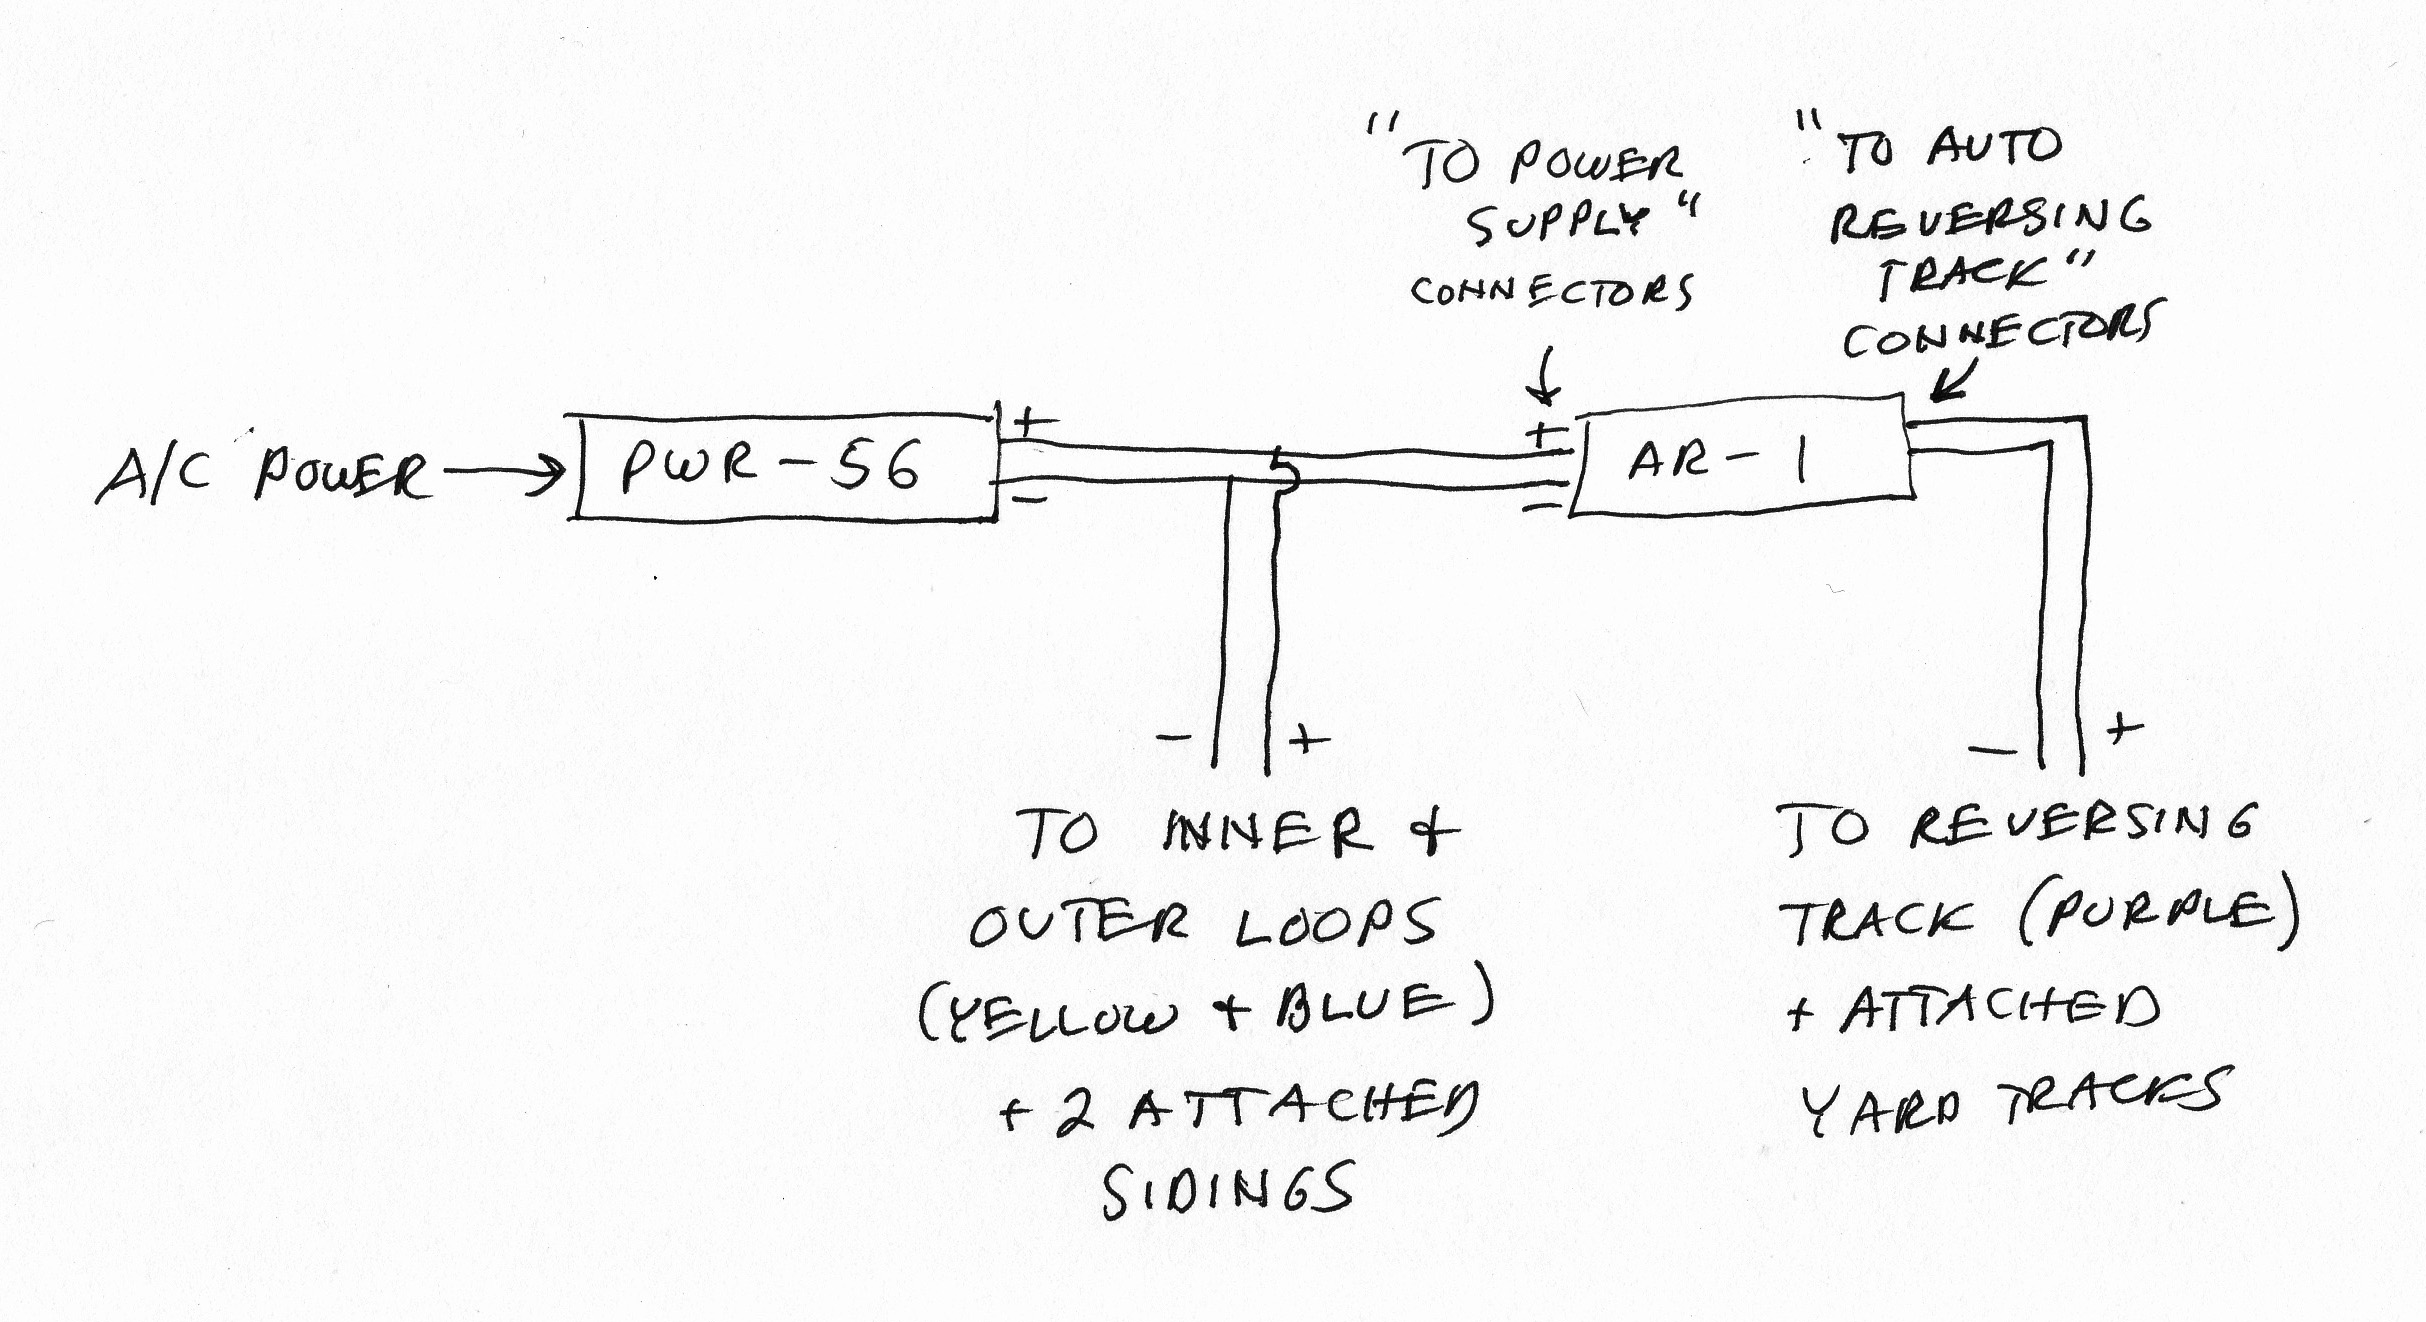 "TO POWER
SUPPLY"
CONNECTORS
"TO AUTO
REVERSING
TRACK"
CONNECTORS
A/C POWER
PWR-56
+
-
+
-
AR-1
- +
TO INNER +
OUTER LOOPS
(YELLOW + BLUE)
+ 2 ATTACHED
SIDINGS
- +
TO REVERSING
TRACK (PURPLE)
+ ATTACHED
YARD TRACKS